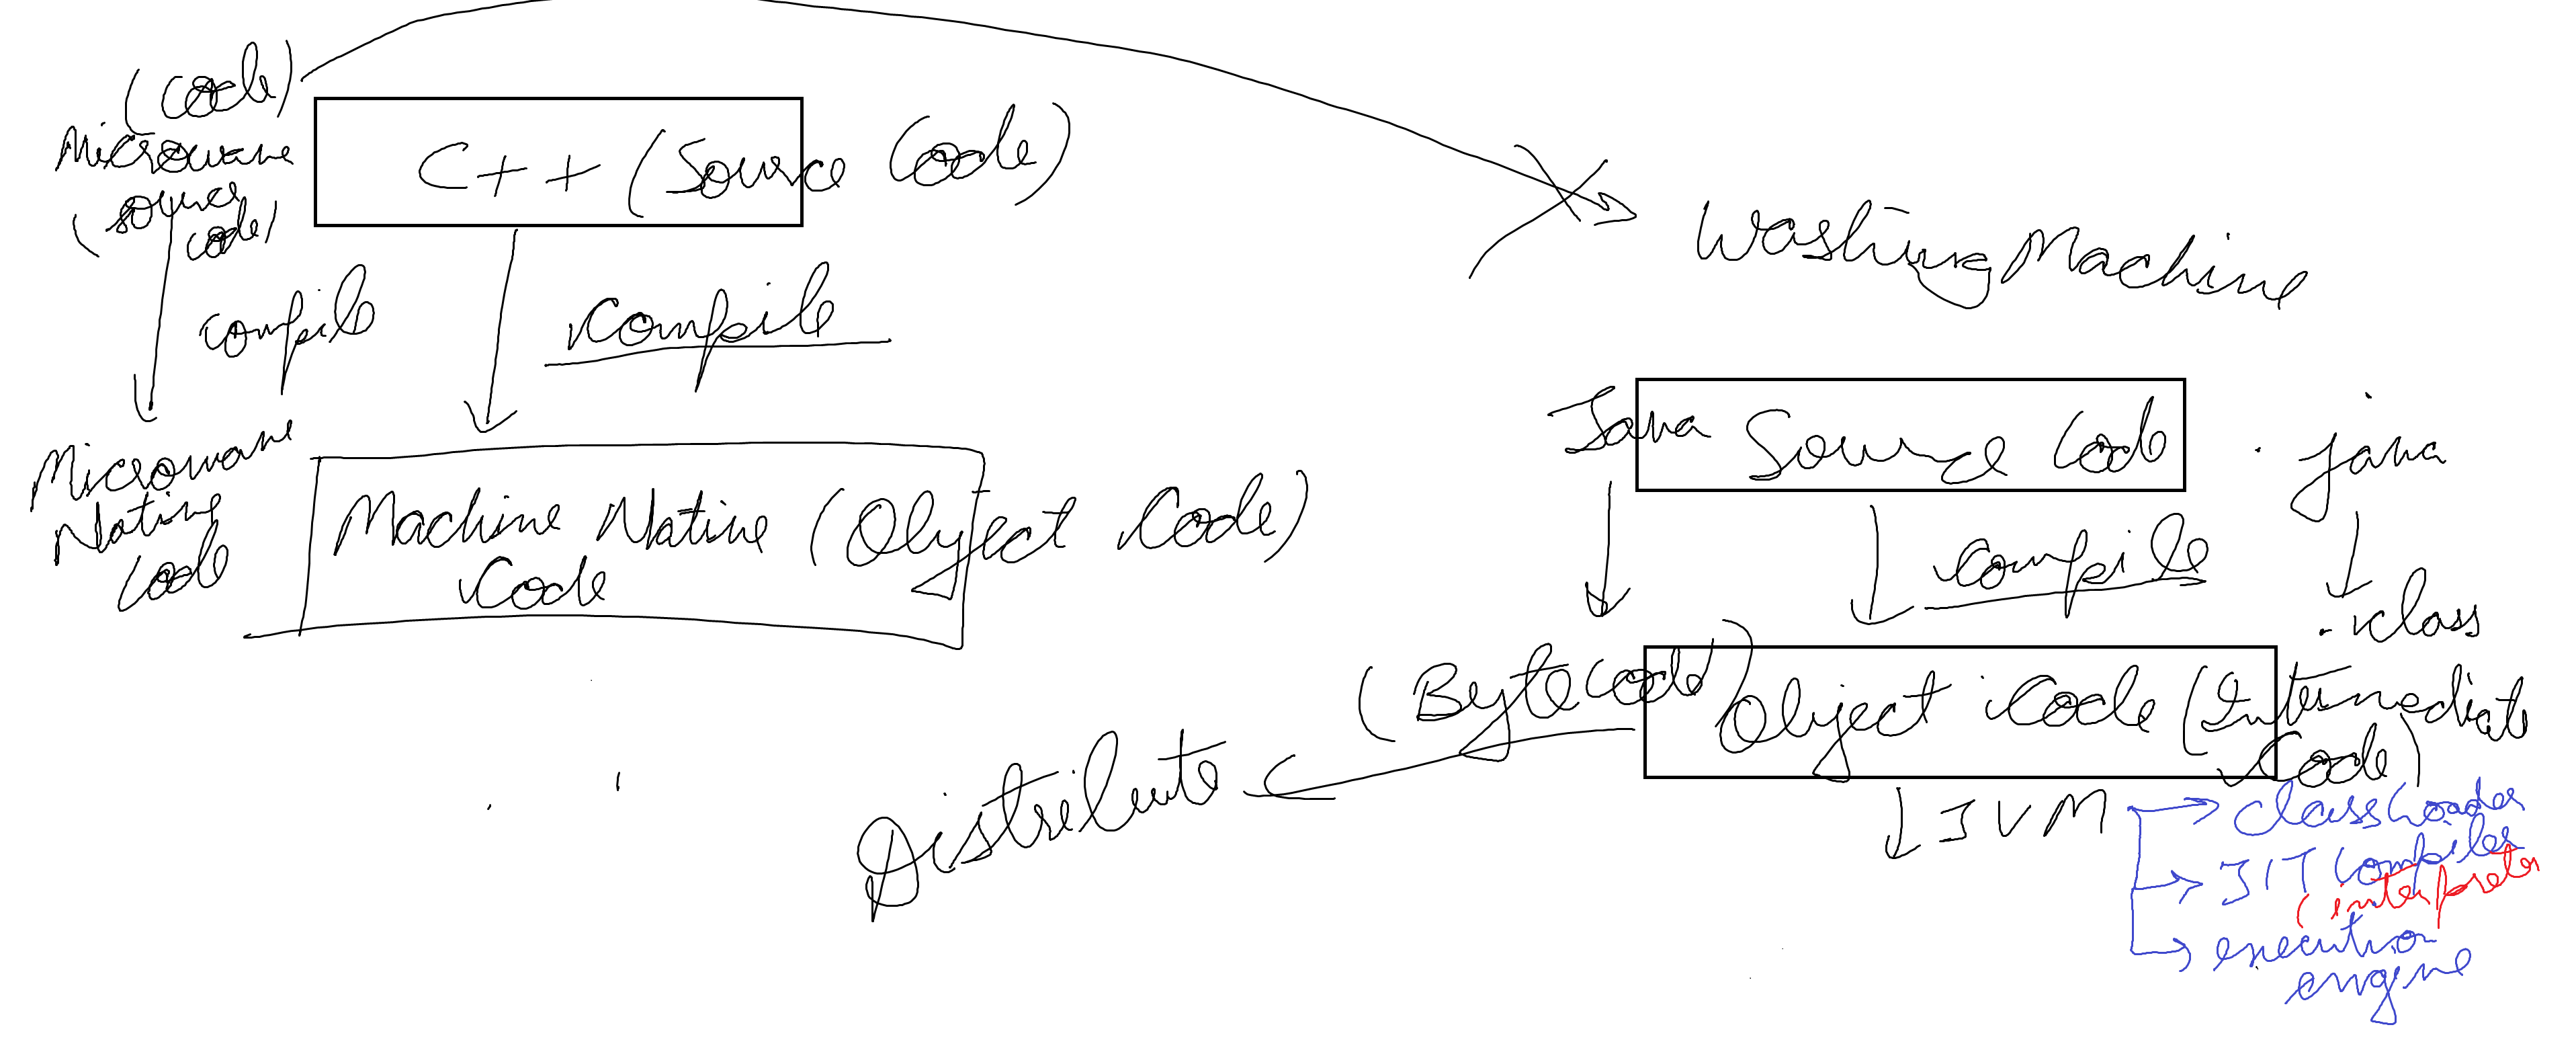 (code)
Microwave
(source
code)
C++ (Source Code)
compile
compile
Microwave
Native
Code
Machine Native (Object Code)
Code
Washing Machine
Java Source Code
.java
compile
.class
(Bytecode)
Object Code (Intermediate
Code)
Distribute
JVM
Class Loader
JIT Compiler
(interpreter
execution
engine